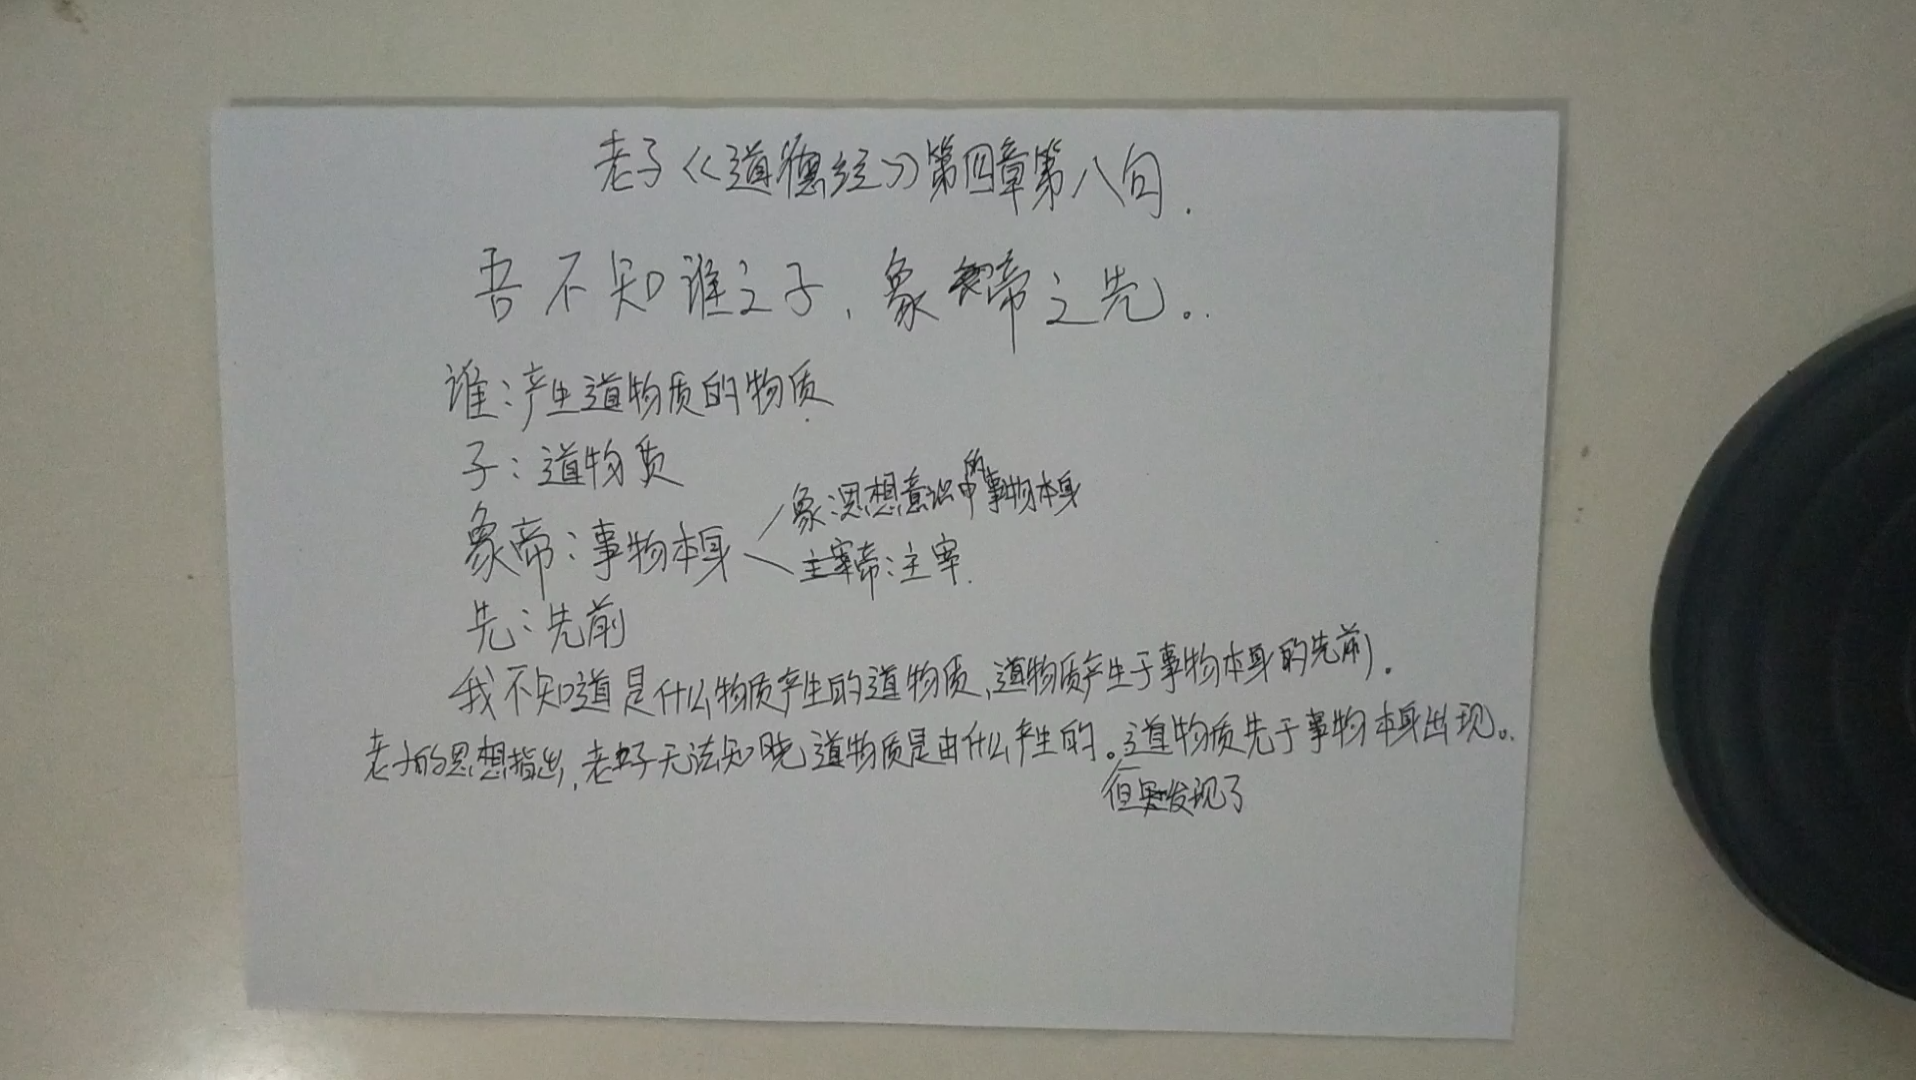 老子《道德经》第四章第八句.
吾不知谁之子,象帝之先。
谁:产生道物质的物质
子:道物质
象:思想意识中的事物本身
象帝:事物本身
帝:主宰
先:先前
我不知道是什么物质产生的道物质,道物质产生于事物本身的先前.
老子的思想指出,老子无法知晓道物质是由什么产生的。道物质先于事物本身出现。
但发现了